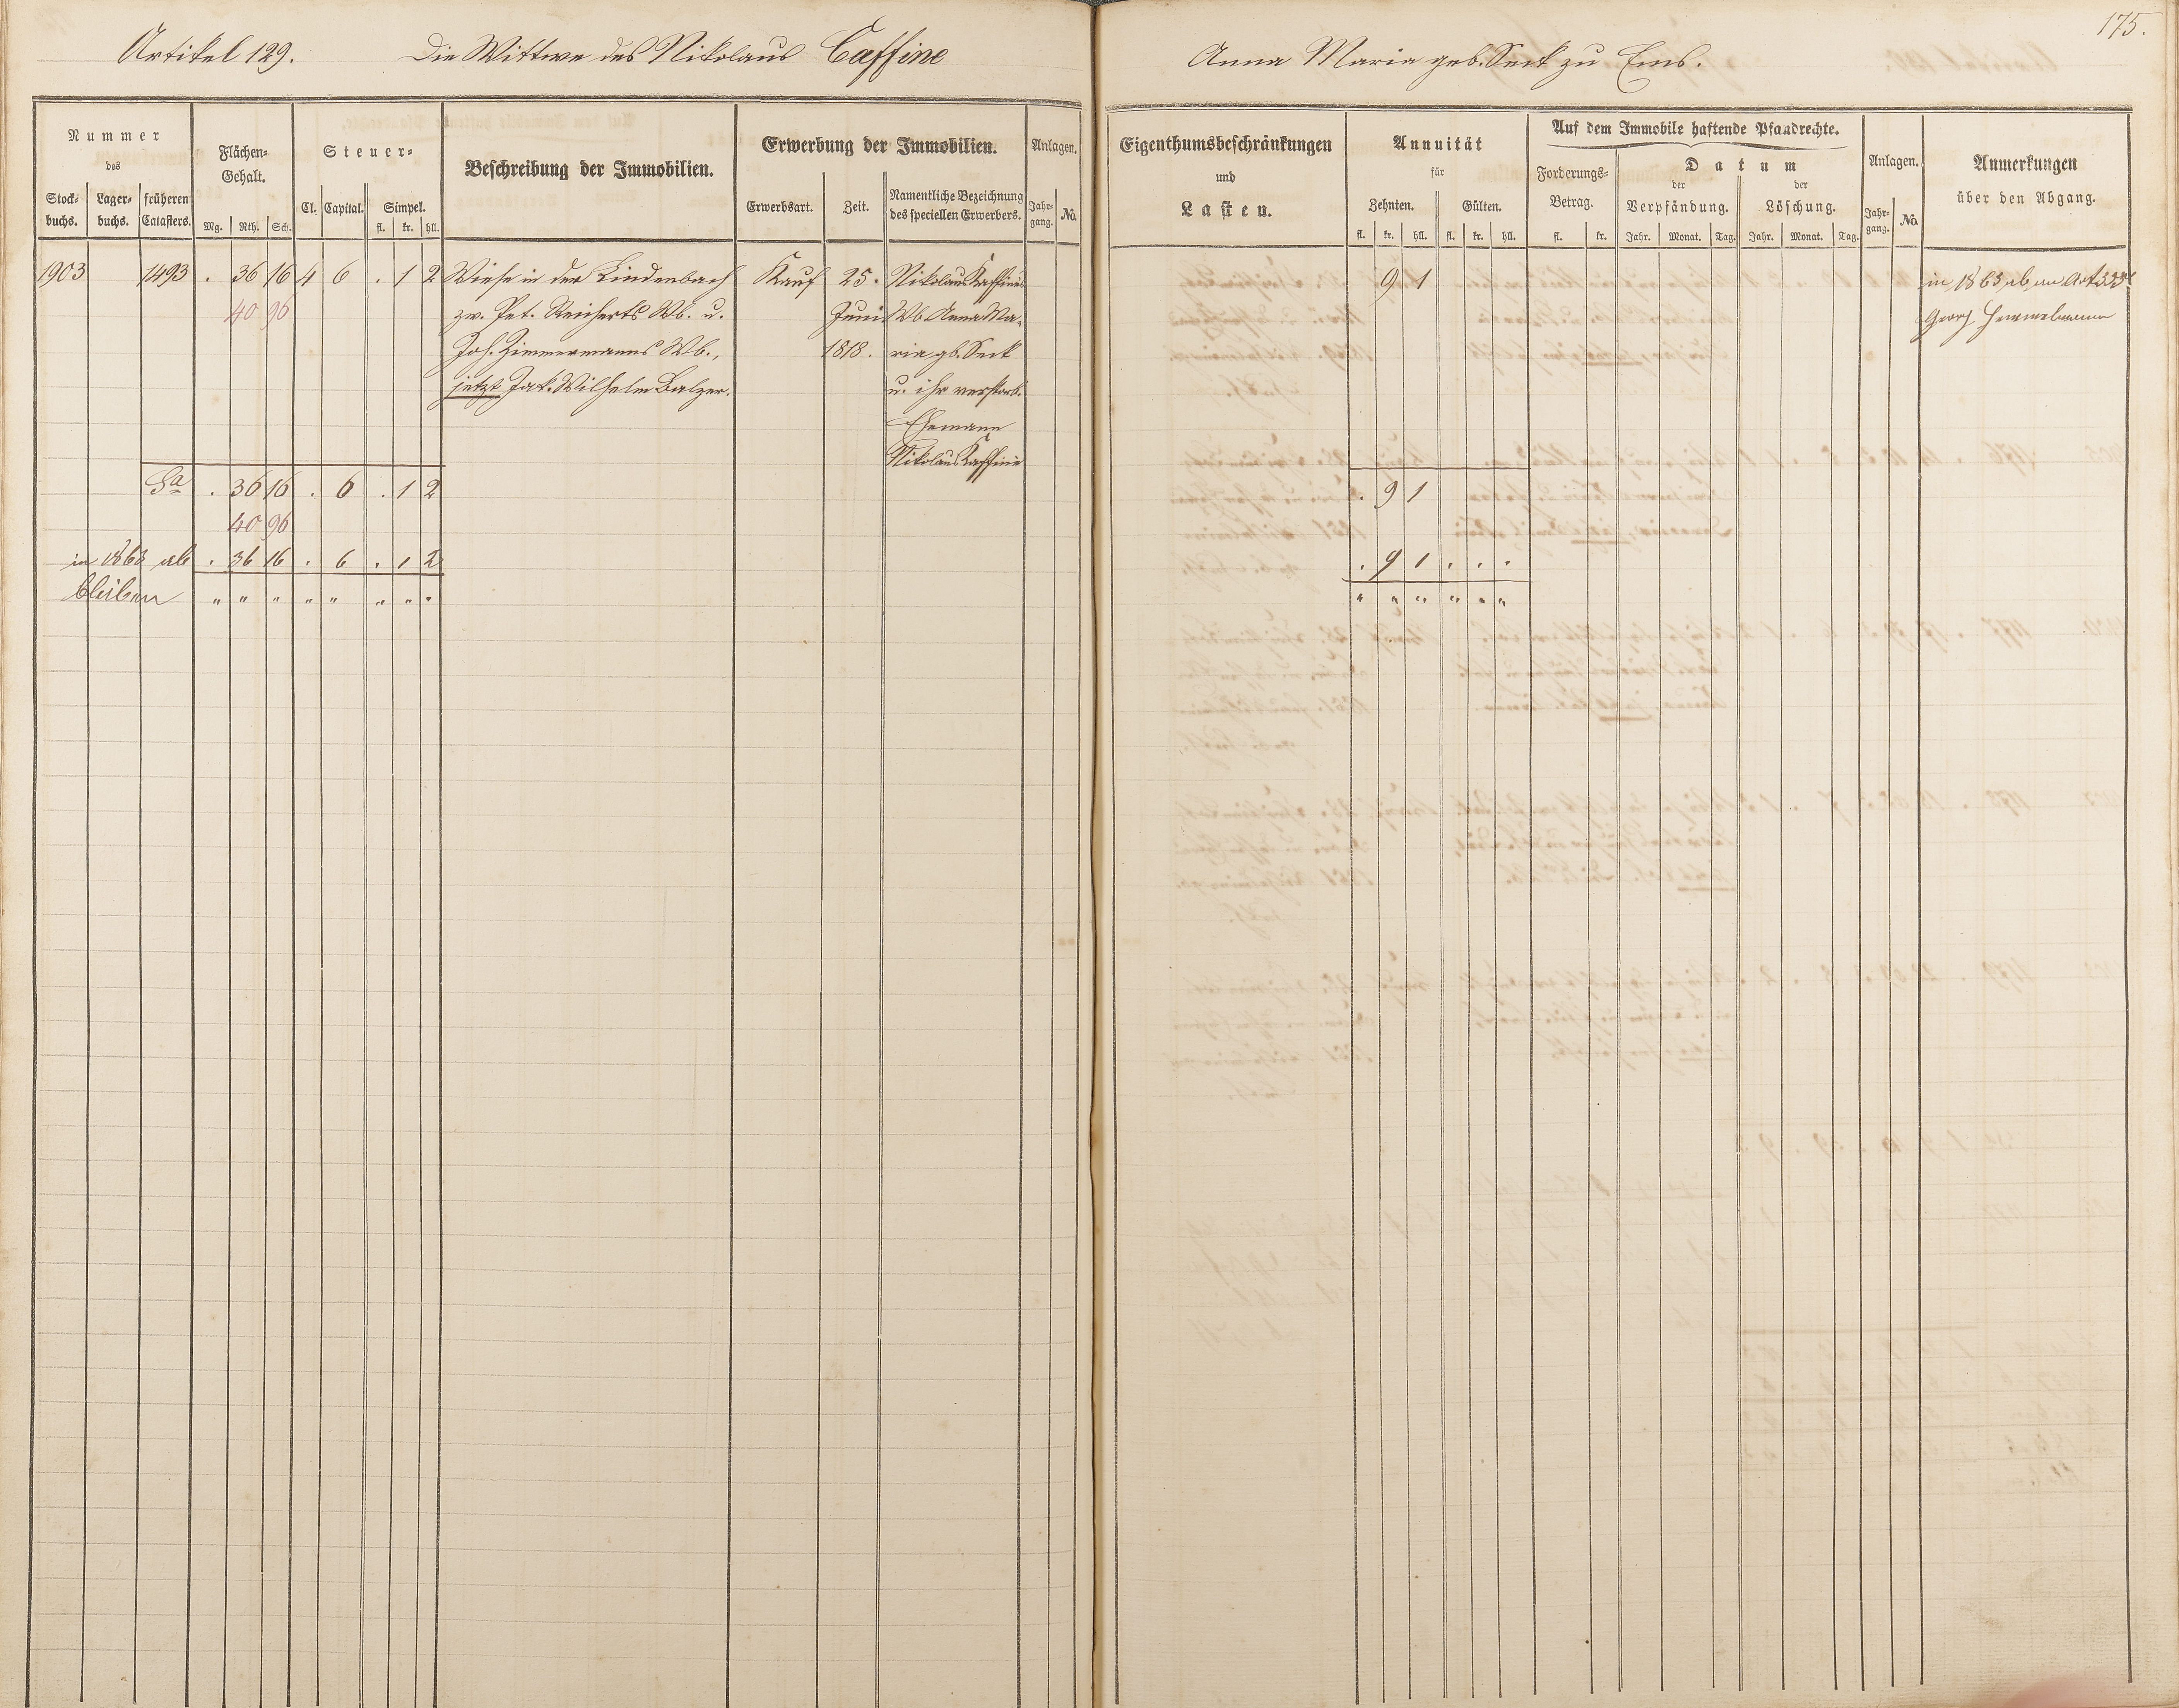 175.
Artikel 129. Die Wittwe des Nikolaus Caffine Anna Maria geb. Seck zu Ems.
Nummer
des
Stock-buchs. Lager-buchs. früheren Catasters.
Flächen-Gehalt.
Mg. Rth. Sch.
Steuer-
Cl. Capital. Simpel.
fl. kr. hll.
Beschreibung der Immobilien.
Erwerbung der Immobilien.
Erwerbsart. Zeit. Namentliche Bezeichnung des speciellen Erwerbers.
Anlagen.
Jahr-gang. No.
Eigenthumsbeschränkungen
und
Lasten.
Annuität
für
Zehnten. Gülten.
fl. kr. hll. fl. kr. hll.
Auf dem Immobile haftende Pfandrechte.
Forderungs-Betrag.
fl. kr.
Datum
der Verpfändung. der Löschung.
Jahr. Monat. Tag. Jahr. Monat. Tag.
Anlagen.
Jahr-gang. No.
Anmerkungen
über den Abgang.
1903 1493 . 36 16 4 6 . 1 2 Wiese in der Lindenbach Kauf 25. Nikolaus Kaffine's 9 1 in 1863 ab an Art.
40 96 zw. Pet. Reicherts Wb. u. Juni Wb. Anna Ma- Georg Hemmelmann
Joh. Zimmermanns Wb., 1818. ria gb. Seck
jetzt Jak. Wilhelm Balzer. u. ihr verstorb.
Ehemann
Nikolaus Kaffine
Sa . 36 16 . 6 . 1 2 . 9 1
40 96
in 1863 ab . 36 16 . 6 . 1 2 . 9 1 . . .
bleiben " " " " " " " " " " " " " "